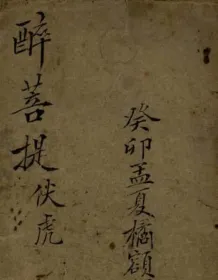 癸卯孟夏橘額
醉菩提伏虎